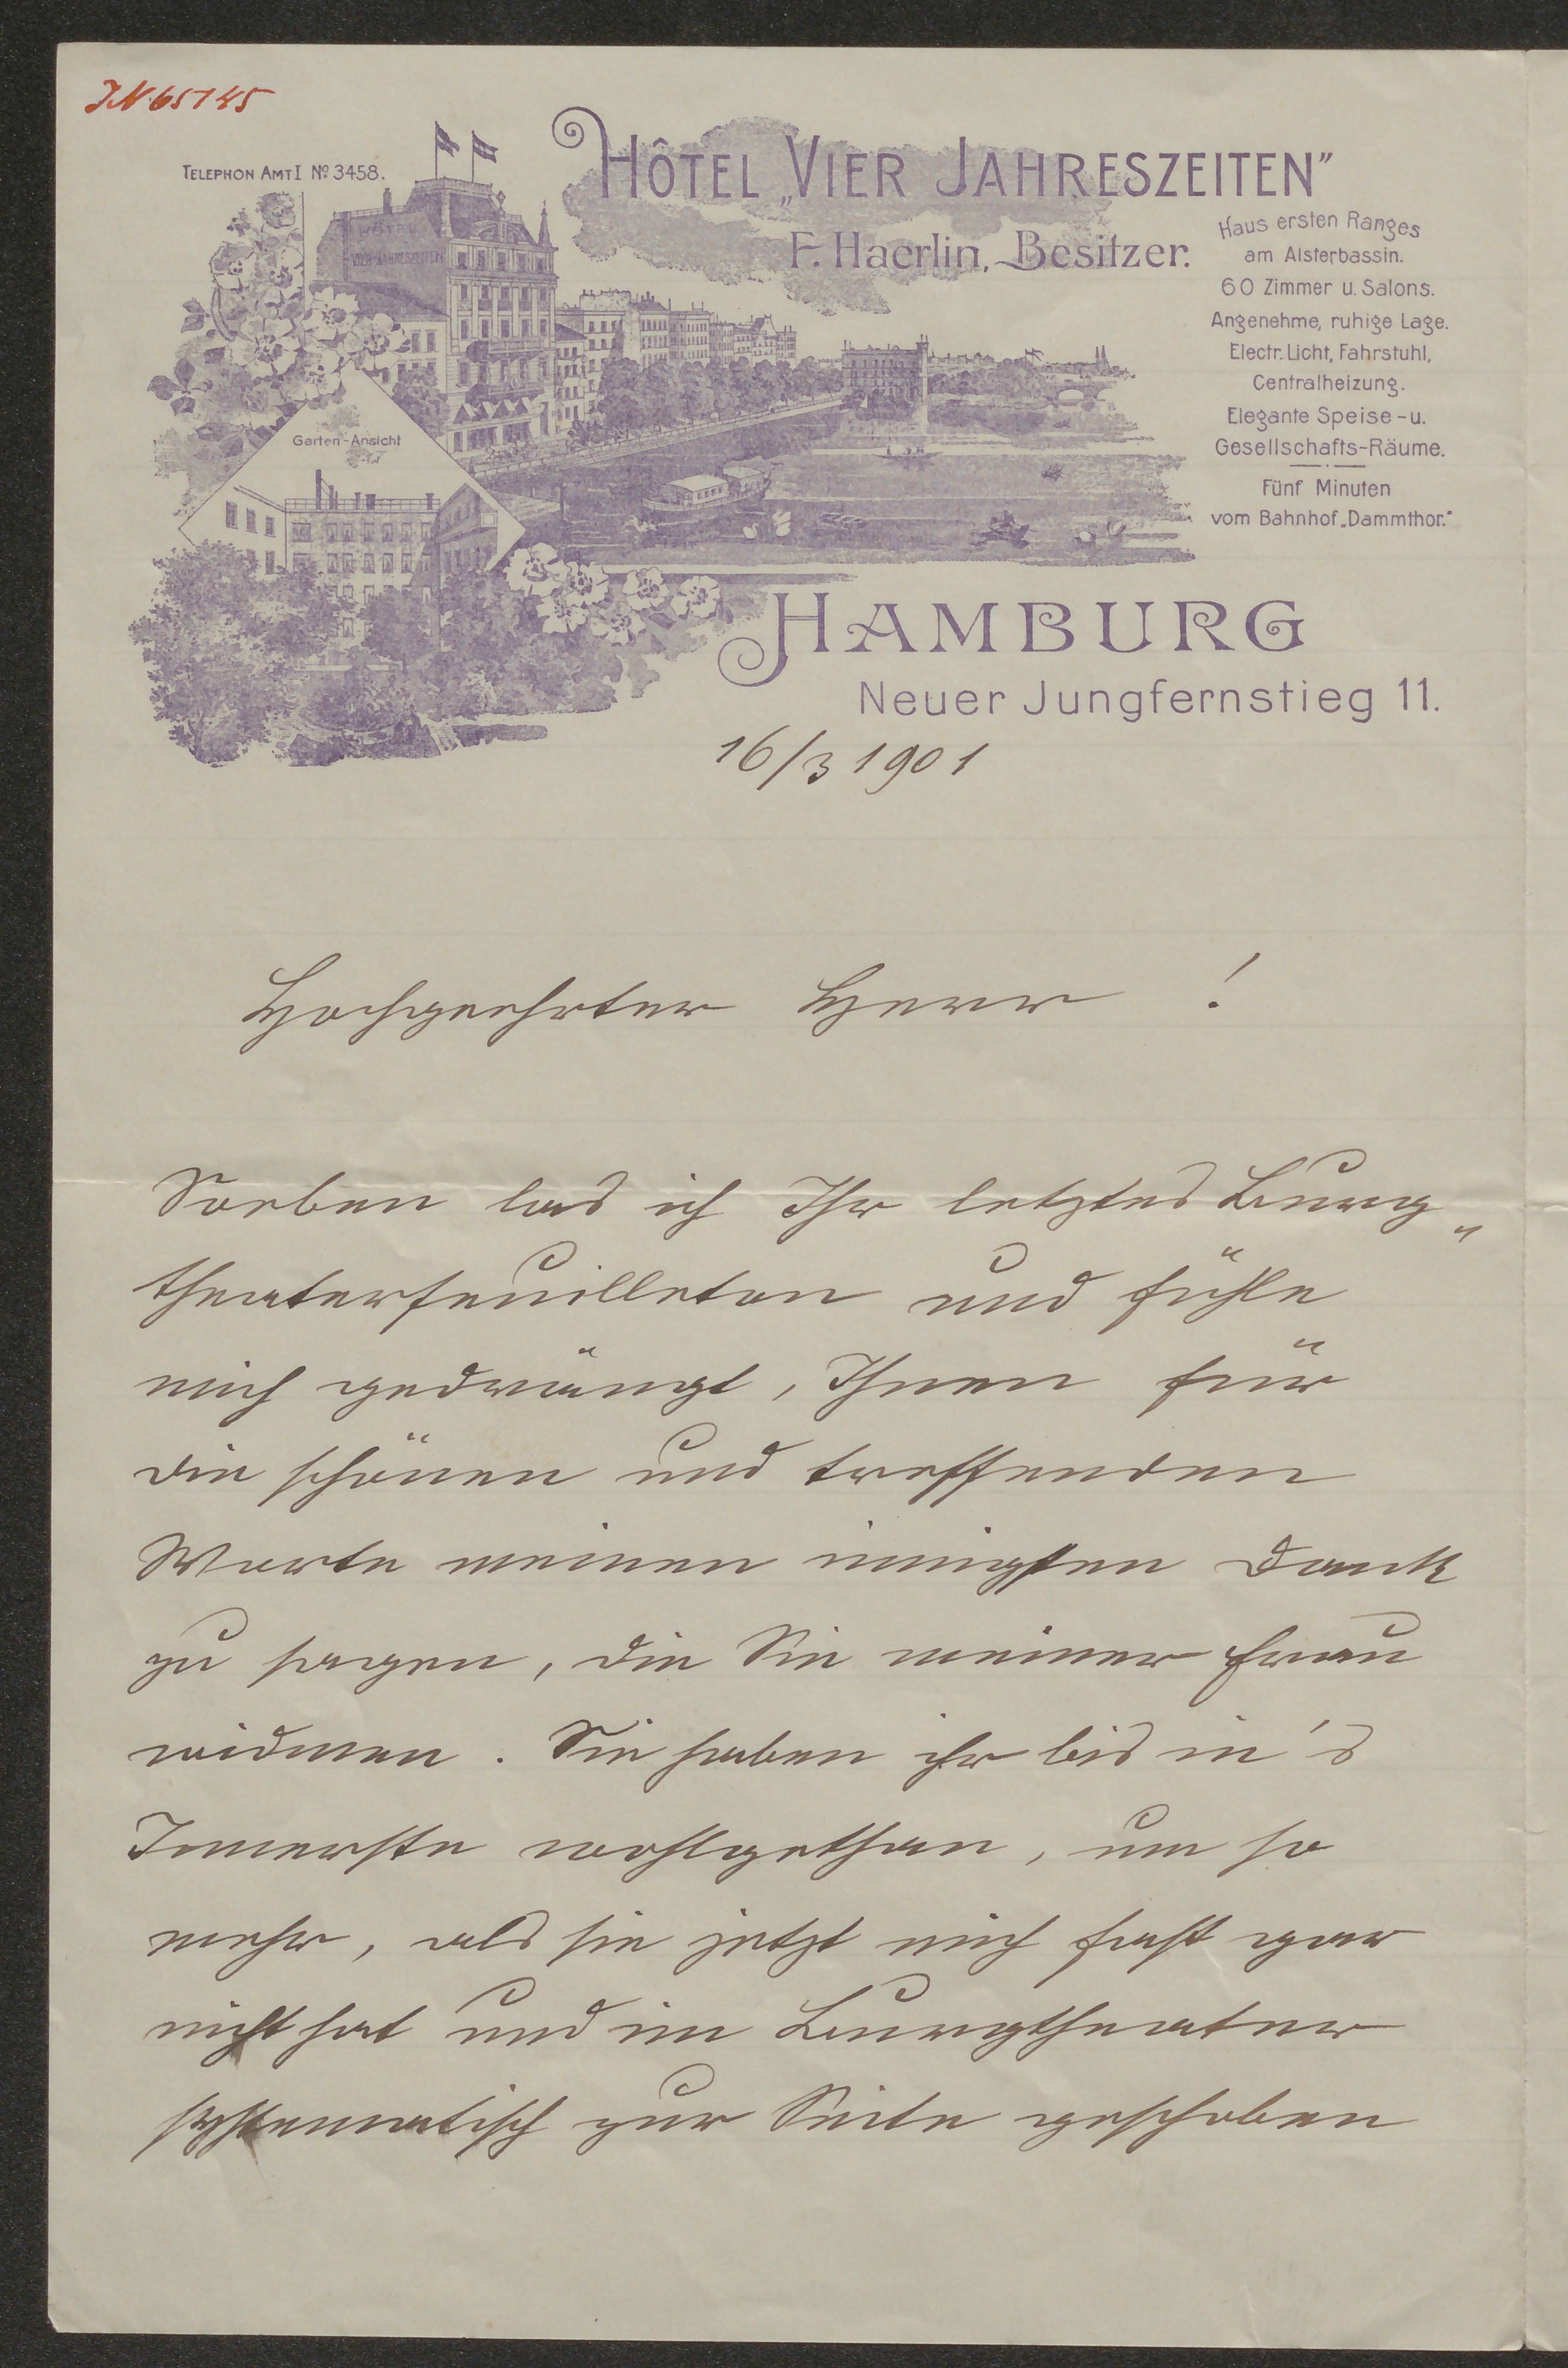 J.N. 65145
TELEPHON AMT I Nº 3458.
HÔTEL „VIER JAHRESZEITEN”
F. Haerlin, Besitzer.
Haus ersten Ranges
am Alsterbassin.
60 Zimmer u. Salons.
Angenehme, ruhige Lage.
Electr. Licht, Fahrstuhl,
Centralheizung.
Elegante Speise-u.
Gesellschafts-Räume.
Fünf Minuten
vom Bahnhof „Dammthor.”
HÔTEL
VIER JAHRESZEITEN
Garten-Ansicht
HAMBURG
Neuer Jungfernstieg 11.
16/3 1901
Hochgeehrter Herr !
Soeben las ich Ihr letztes Burg„
theaterfeuilleton und fühle
mich gedrängt, Ihnen für
die schönen und treffenden
Worte meinen innigsten Dank
zu sagen, die Sie meiner Frau
widmen. Sie haben ihr bis in's
Innerste wohlgethan, um so
mehr, als sie jetzt mich fast gar
nicht hat und im Burgtheater
systematisch zur Seite geschoben